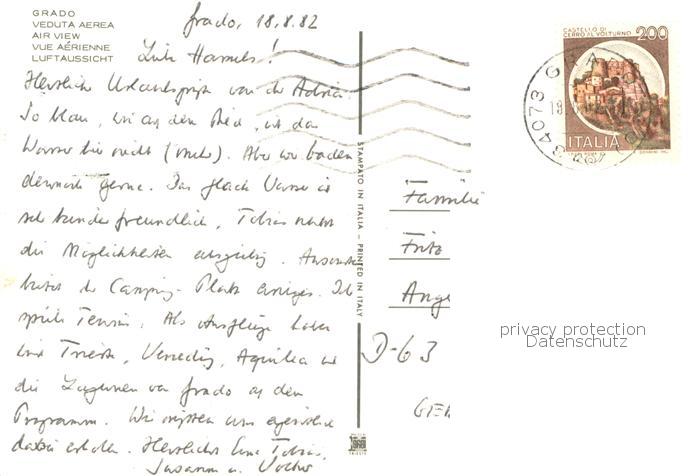 GRADO
VEDUTA AEREA
AIR VIEW
VUE AÉRIENNE
LUFTAUSSICHT
Grado, 18.8.82
Liebe Hammels!
Herzliche Urlaubsgrüße von der Adria.
So blau, wie auf dem Bild, ist das
Wasser hier nicht (mehr). Aber wir baden
dennoch gerne. Das flache Wasser ist
sehr kinderfreundlich, Tobias nutzt
die Möglichkeiten ausgiebig. Ansonsten
bietet der Camping-Platz einiges. Ich
spiele Tennis. Als Ausflüge haben
wir Triest, Venedig, Aquileia und
die Lagunen von Grado auf dem
Programm. Wir müssten uns eigentlich
dabei erholen. Herzlichst Eure Tobias,
Susanne u. Volker
STAMPATO IN ITALIA - PRINTED IN ITALY
CASTELLO DI
CERRO AL VOLTURNO
200
ITALIA
34073 GRADO
Familie
Fritz
Ange
D-63
GER
privacy protection
Datenschutz
TRIESTE